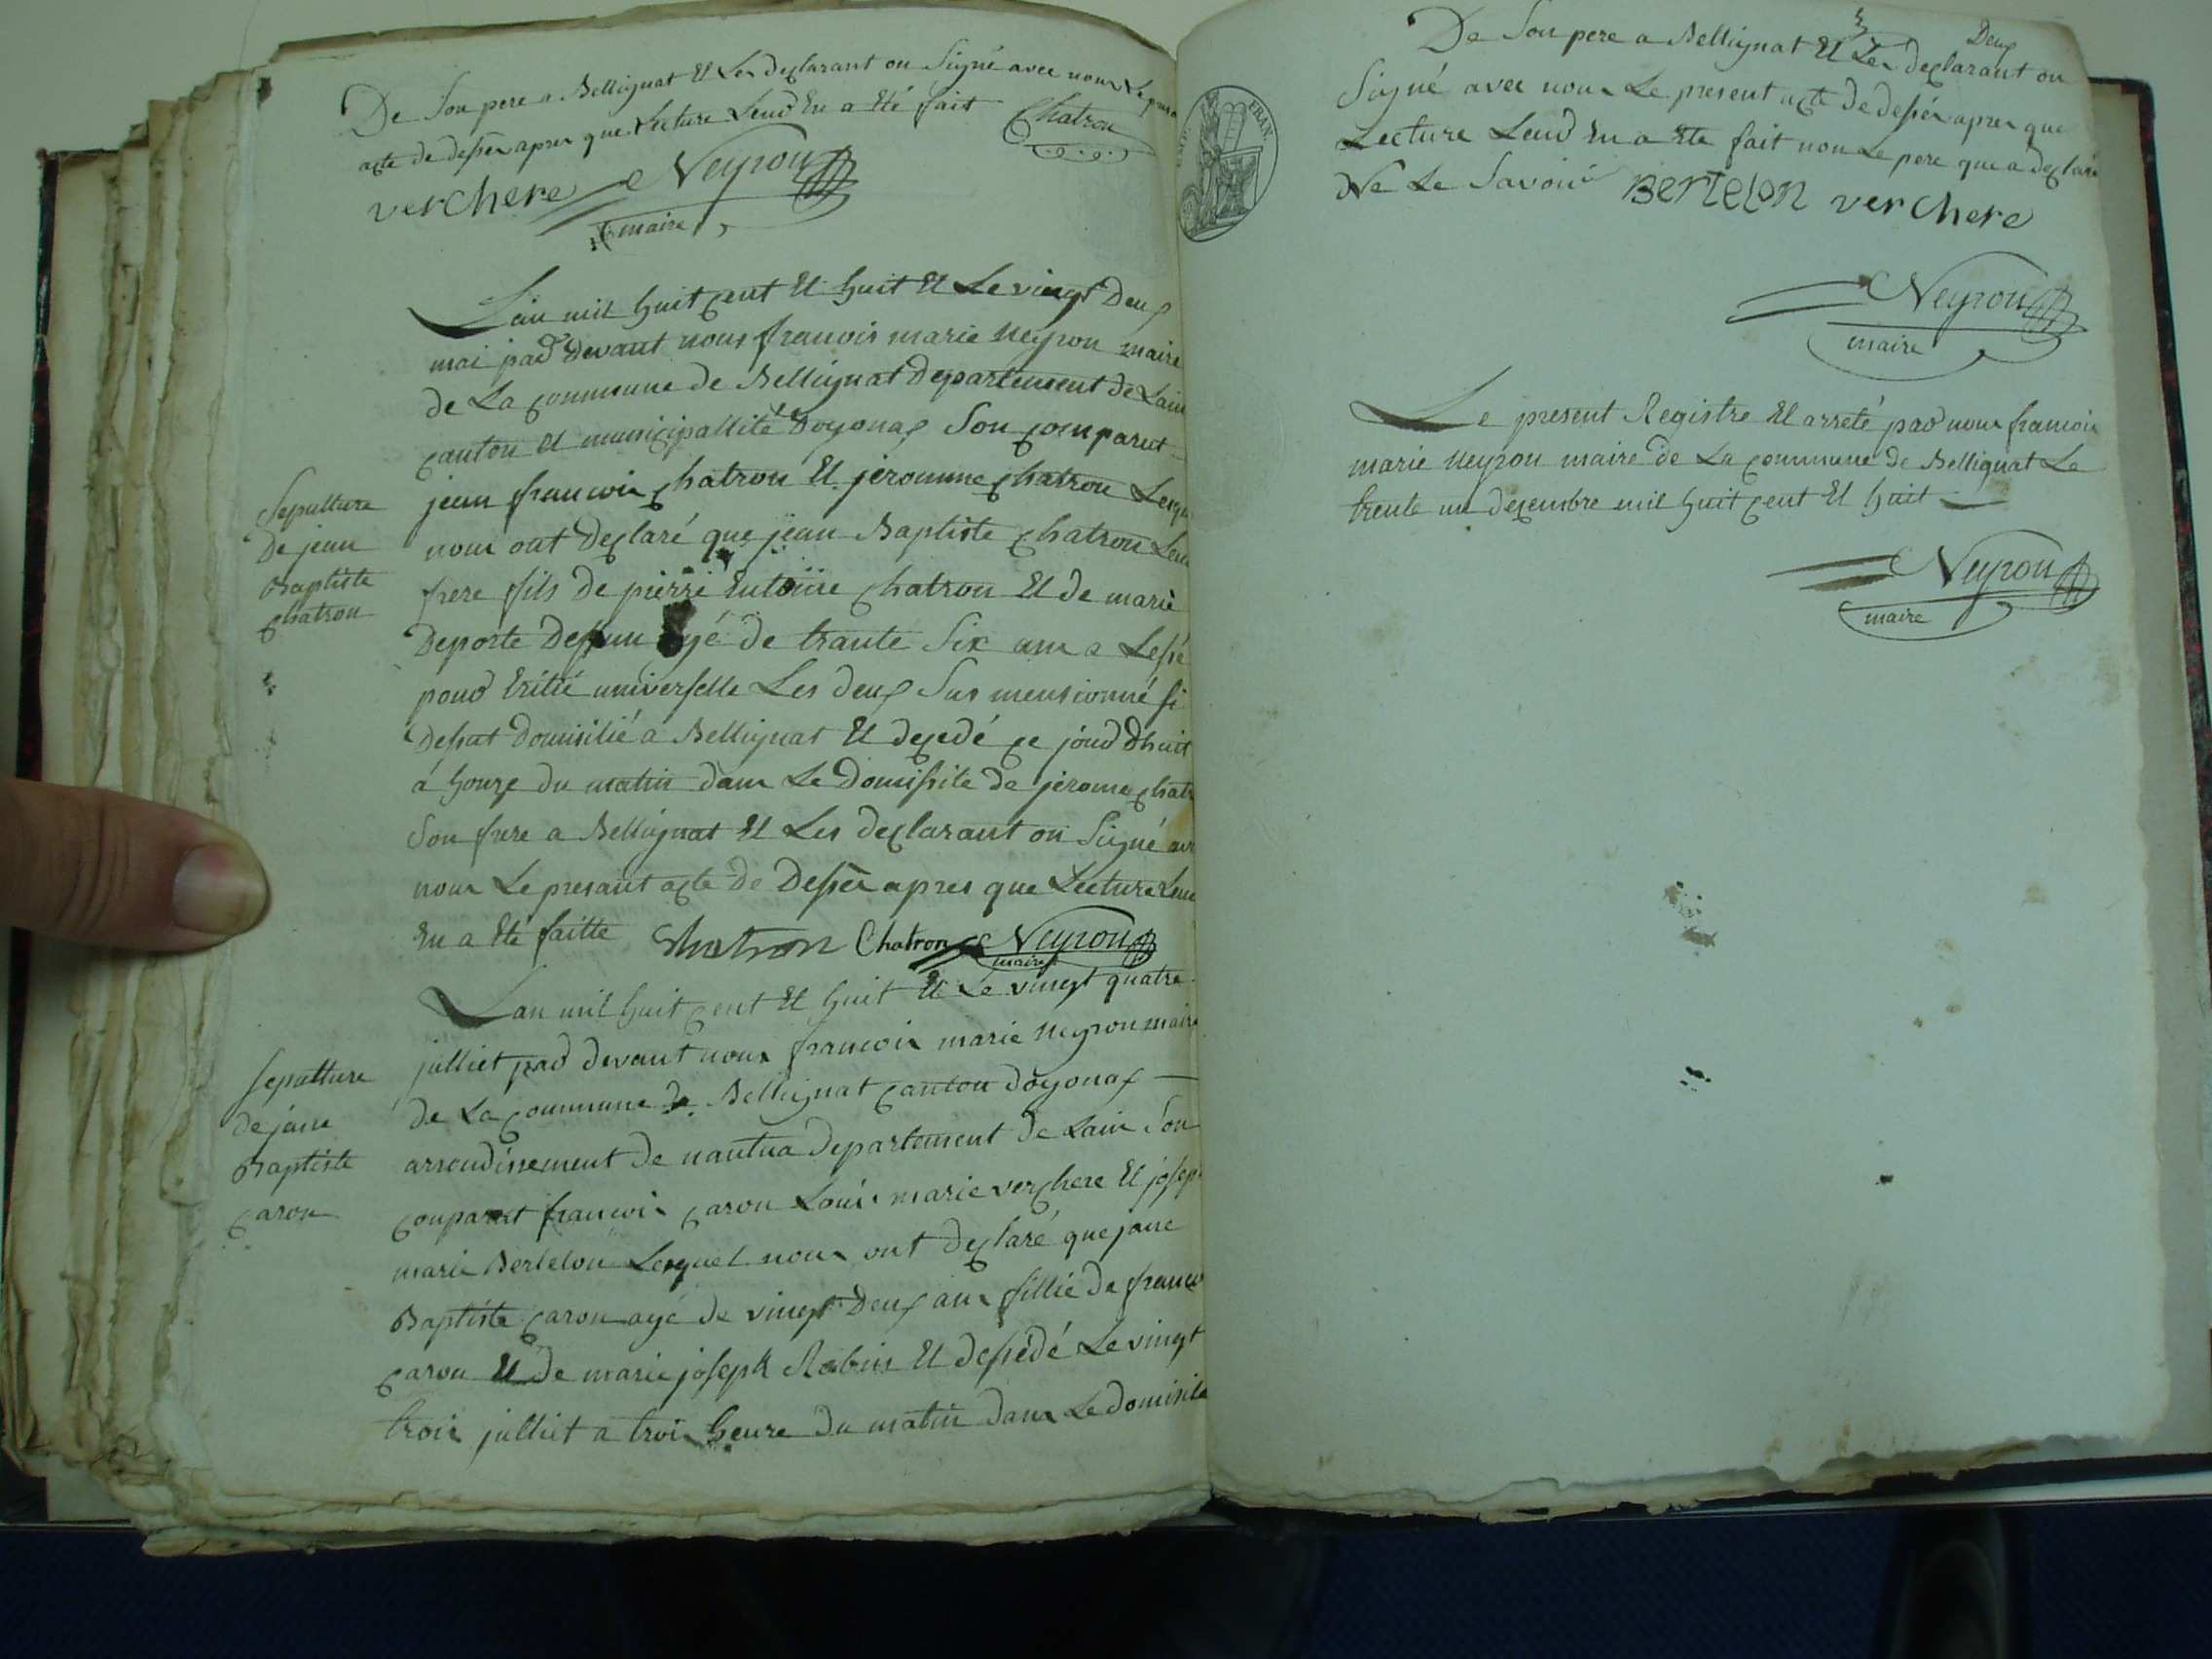 De Son pere a Bellignat Et Les declarant on Signé avec nous Le presa
acte de desser apres que Lecture Leur En a Eté fait
Chatron
verchere Neyron
maire
Lan mil huit cent Et huit Et Le vingt Deux
mai par devant nous francois marie neyron maire
de La commune de Bellignat Departement de Lain
canton Et municipallité Doyonax Son comparut
jean francois chatron Et jeromme chatron Lesqu
nous ont declaré que jean Baptiste chatron Leu
frere fils de pierre Entoine chatron Et de marie
Deporte Deffun agé de trante Six ans a Lessé
pour Eritié universelle Les deux Sus mensionné si
Dessut Domisilié a Bellignat Et decedé ce jour Dhuit
a honze du matin dans Le Domissile de jerome chatr
Son frere a Bellignat Et Les declarant on Signé av
nous Le presant acte de Desser apres que Lecture Leur
En a Eté faitte Chatron Chatron Neyron
maire
Sepulture
De jean
Baptiste
chatron
Lan mil huit cent Et huit Et Le vingt quatre
julliet par devant nous francois marie neyron maire
de La commune de Bellignat canton doyonax
arrondissement de nantua departement de Lain Son
comparut francois caron Louis marie verchere Et josep
marie Bertelon Lesquel nous ont declaré que jane
Baptiste caron agé de vingt Deux ans fillie de franco
caron Et de marie joseph Robin Et dessédé Le vingt
trois julliet a trois heure du matin dans Le domisile
sepulture
de jane
Baptiste
caron
Deux
De Son pere a Bellignat Et Les declarant on
Signé avec nous Le present acte de desser apres que
Lecture Leur En a Ete fait non Le pere que a declaré
Ne Le Savoir Bertelon verchere
FRAN.
Neyron
maire
Le present Registre Et arreté par nous francois
marie neyron maire de La commune de Bellignat Le
trente un decembre mil huit cent Et huit
Neyron
maire